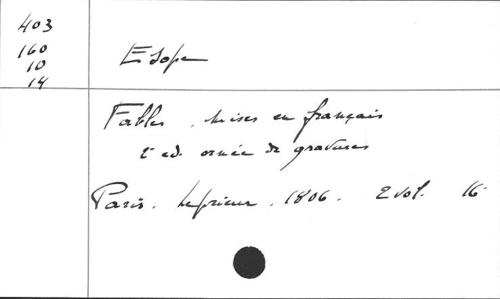 403
160
10
14
Esope
Fables. Mises en français
2e ed. ornée de gravures
Paris. Leprieur. 1806. 2 vol. 16